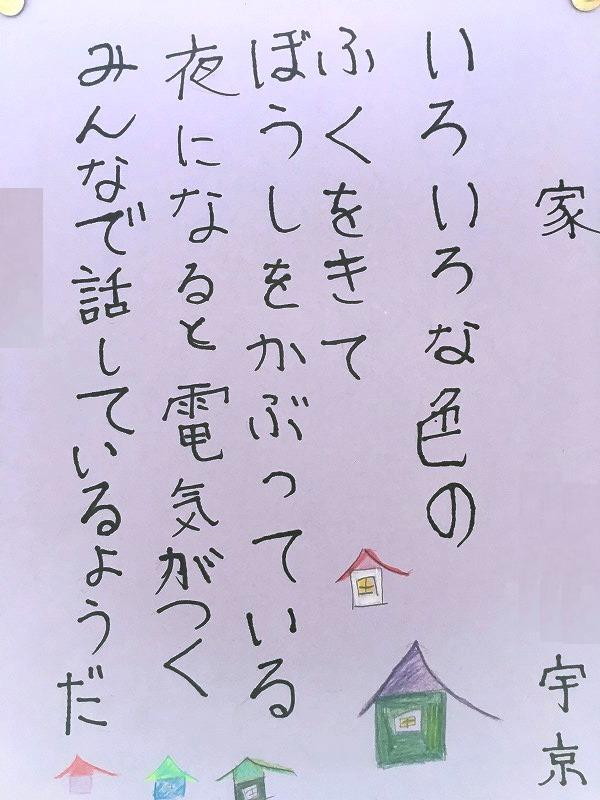 家
宇京
いろいろな色の
ふくをきて
ぼうしをかぶっている
夜になると電気がつく
みんなで話しているようだ